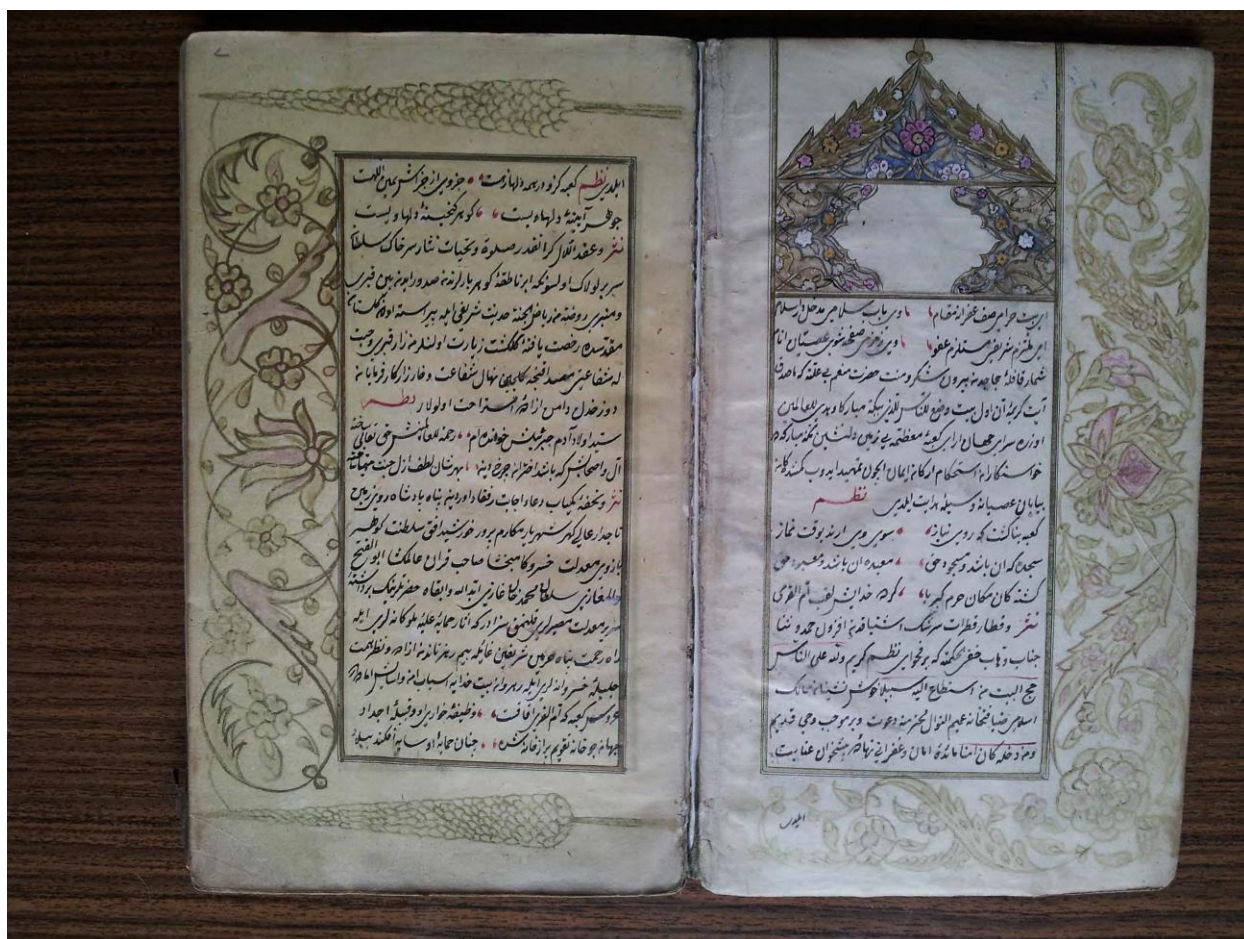 ای بیت حرامی صف غفرانه مقام وی باب سلامی مدخل دار سلام
ای ملتزم شریفی مستلزم عفو وی زمزمی صفحه شوی عصیان انام
شمار قافلهٔ بیرون شکر و منت حضرت منعم بی علته که ماصدق
آیت کریمهٔ ان اول بیت وضع للناس للذی ببکة مبارکا وهدی للعالمین
اوزره سرای جهان ارای کعبهٔ معظمه یی زمین دلنشین مکهٔ مبارکه ده
خواستکاران استحکام ارکان ایمان ایچون تمهید ایدوب کمشدکان
بیابان عصیانه وسیلهٔ هدایت ایلدی نظم
کعبه بناکشت که روی نیاز سوی وی ارند بوقت نماز
سجده که ان باشد و مسجود حق معبده ان باشد و معبود حق
کشته کان مکان حرم کبریا کرده خدایش لقب ام القری
نثر و قطار قطرات سرشک اشتیاقدن افزون حمد و ثنا
جناب وهاب خفی الحکمته که بر فحوای نظم کریم ولله علی الناس
حج البیت من استطاع الیه سبیلا خوش نشینان ممالک
اسلامی ضیافتخانهٔ عمیم النوال دعوت و بر موجب وحی قدیم
ومن دخله کان امنا مائدهٔ امان و غفرانی نهادهٔ پیشخوان عنایت
ایلدی
ایلدی نظم کعبه کزو در همه دلها رهست جزوی از جزء کش یمین اللهست
جوهر آیینهٔ دلهاء یست کوهر کنجینهٔ دلها ویست
نثر و عقد اللآل کرانقدر صلوة و تحیات نثار سر خاک سلطان
سریر لولاک اولسونکه ابر ناطقهٔ کوهر بارلرندن صدور ایدن بین قبری
و منبری روضة من ریاض الجنة حدیث شریفی ایله پیراسته اولان کلستان
مقدسده رخصت یافتهٔ کلکشت زیارت اولنلر من زار قبری وجبت
له شفاعتی نهال شفاعت و خارزار کارفرمایان
دوزخدن دامن ازاده استراحت اولورلر نظم
سید اولاد آدم خوانده ام رحمة للعالمینش حق تعالی ساخته
آل و اصحابش که باشند اختران چرخ دین بهر شان لطف ازل جنت مهیا ساخته
نثر و تحفهٔ دعاء اجابت رفقاد اورین پناه پادشاه روی زمین
تاجدار عالی کهر شهریار مکارم پرور خورشید افق سلطنت کوهر
بازوی معدلت خسرو کامبخشا صاحب قران ابو الفتح
والمغازی سلطان محمد خان غازی ابده الله وابقاه حضرتلرینک
سریر معدلت مصیرلری سزادر که آثار حمایهٔ علیهٔ ملوکانه لری ایله
راه رحمت پناه حرمین شریفین رهزناندن ازاده و نظر همت
جلیلهٔ خسروانه لری ایله رهروان بیت خدایه اسباب امن و اسایش اماده در
عروس کعبه که ام القری افاقست وظیفه خواری او وقبلهٔ اجداد
جهان چو خانهٔ تقویم پر از فتنه شده چنان حمایهٔ او سایه افکند